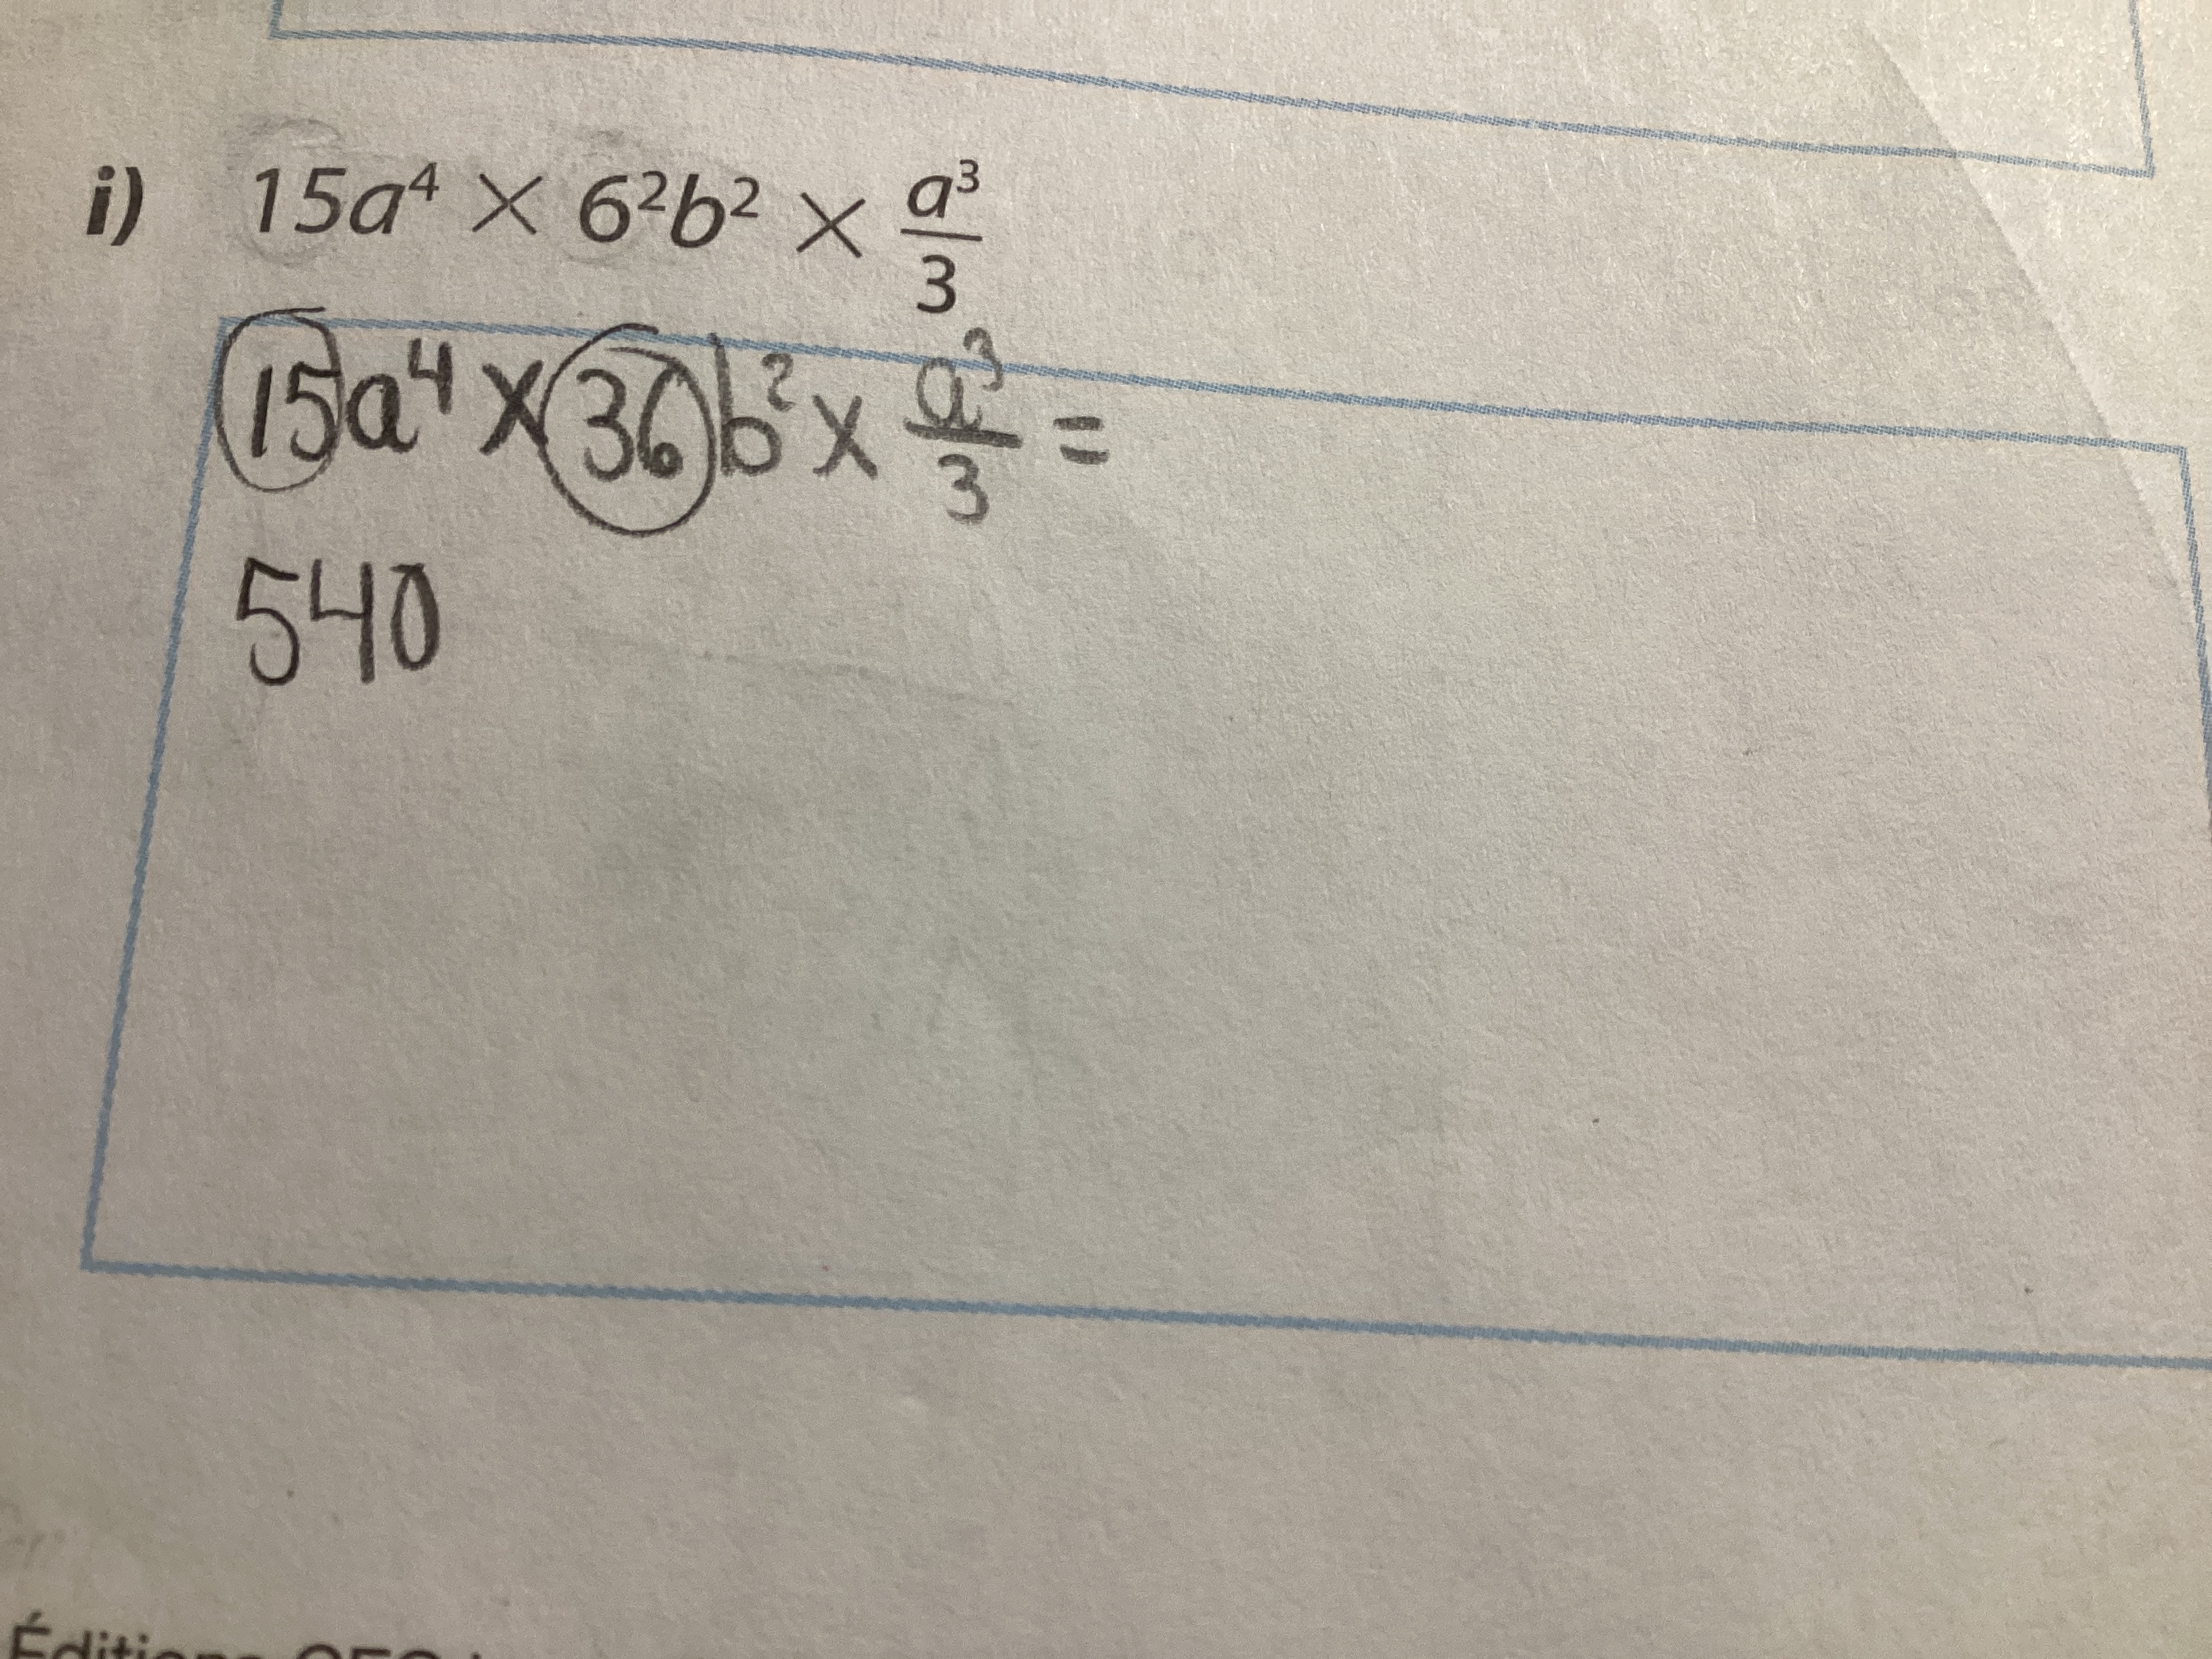 i) 15a⁴ × 6²b² × a³/3
15a⁴ × 36b² × a³/3 =
540
Éditions